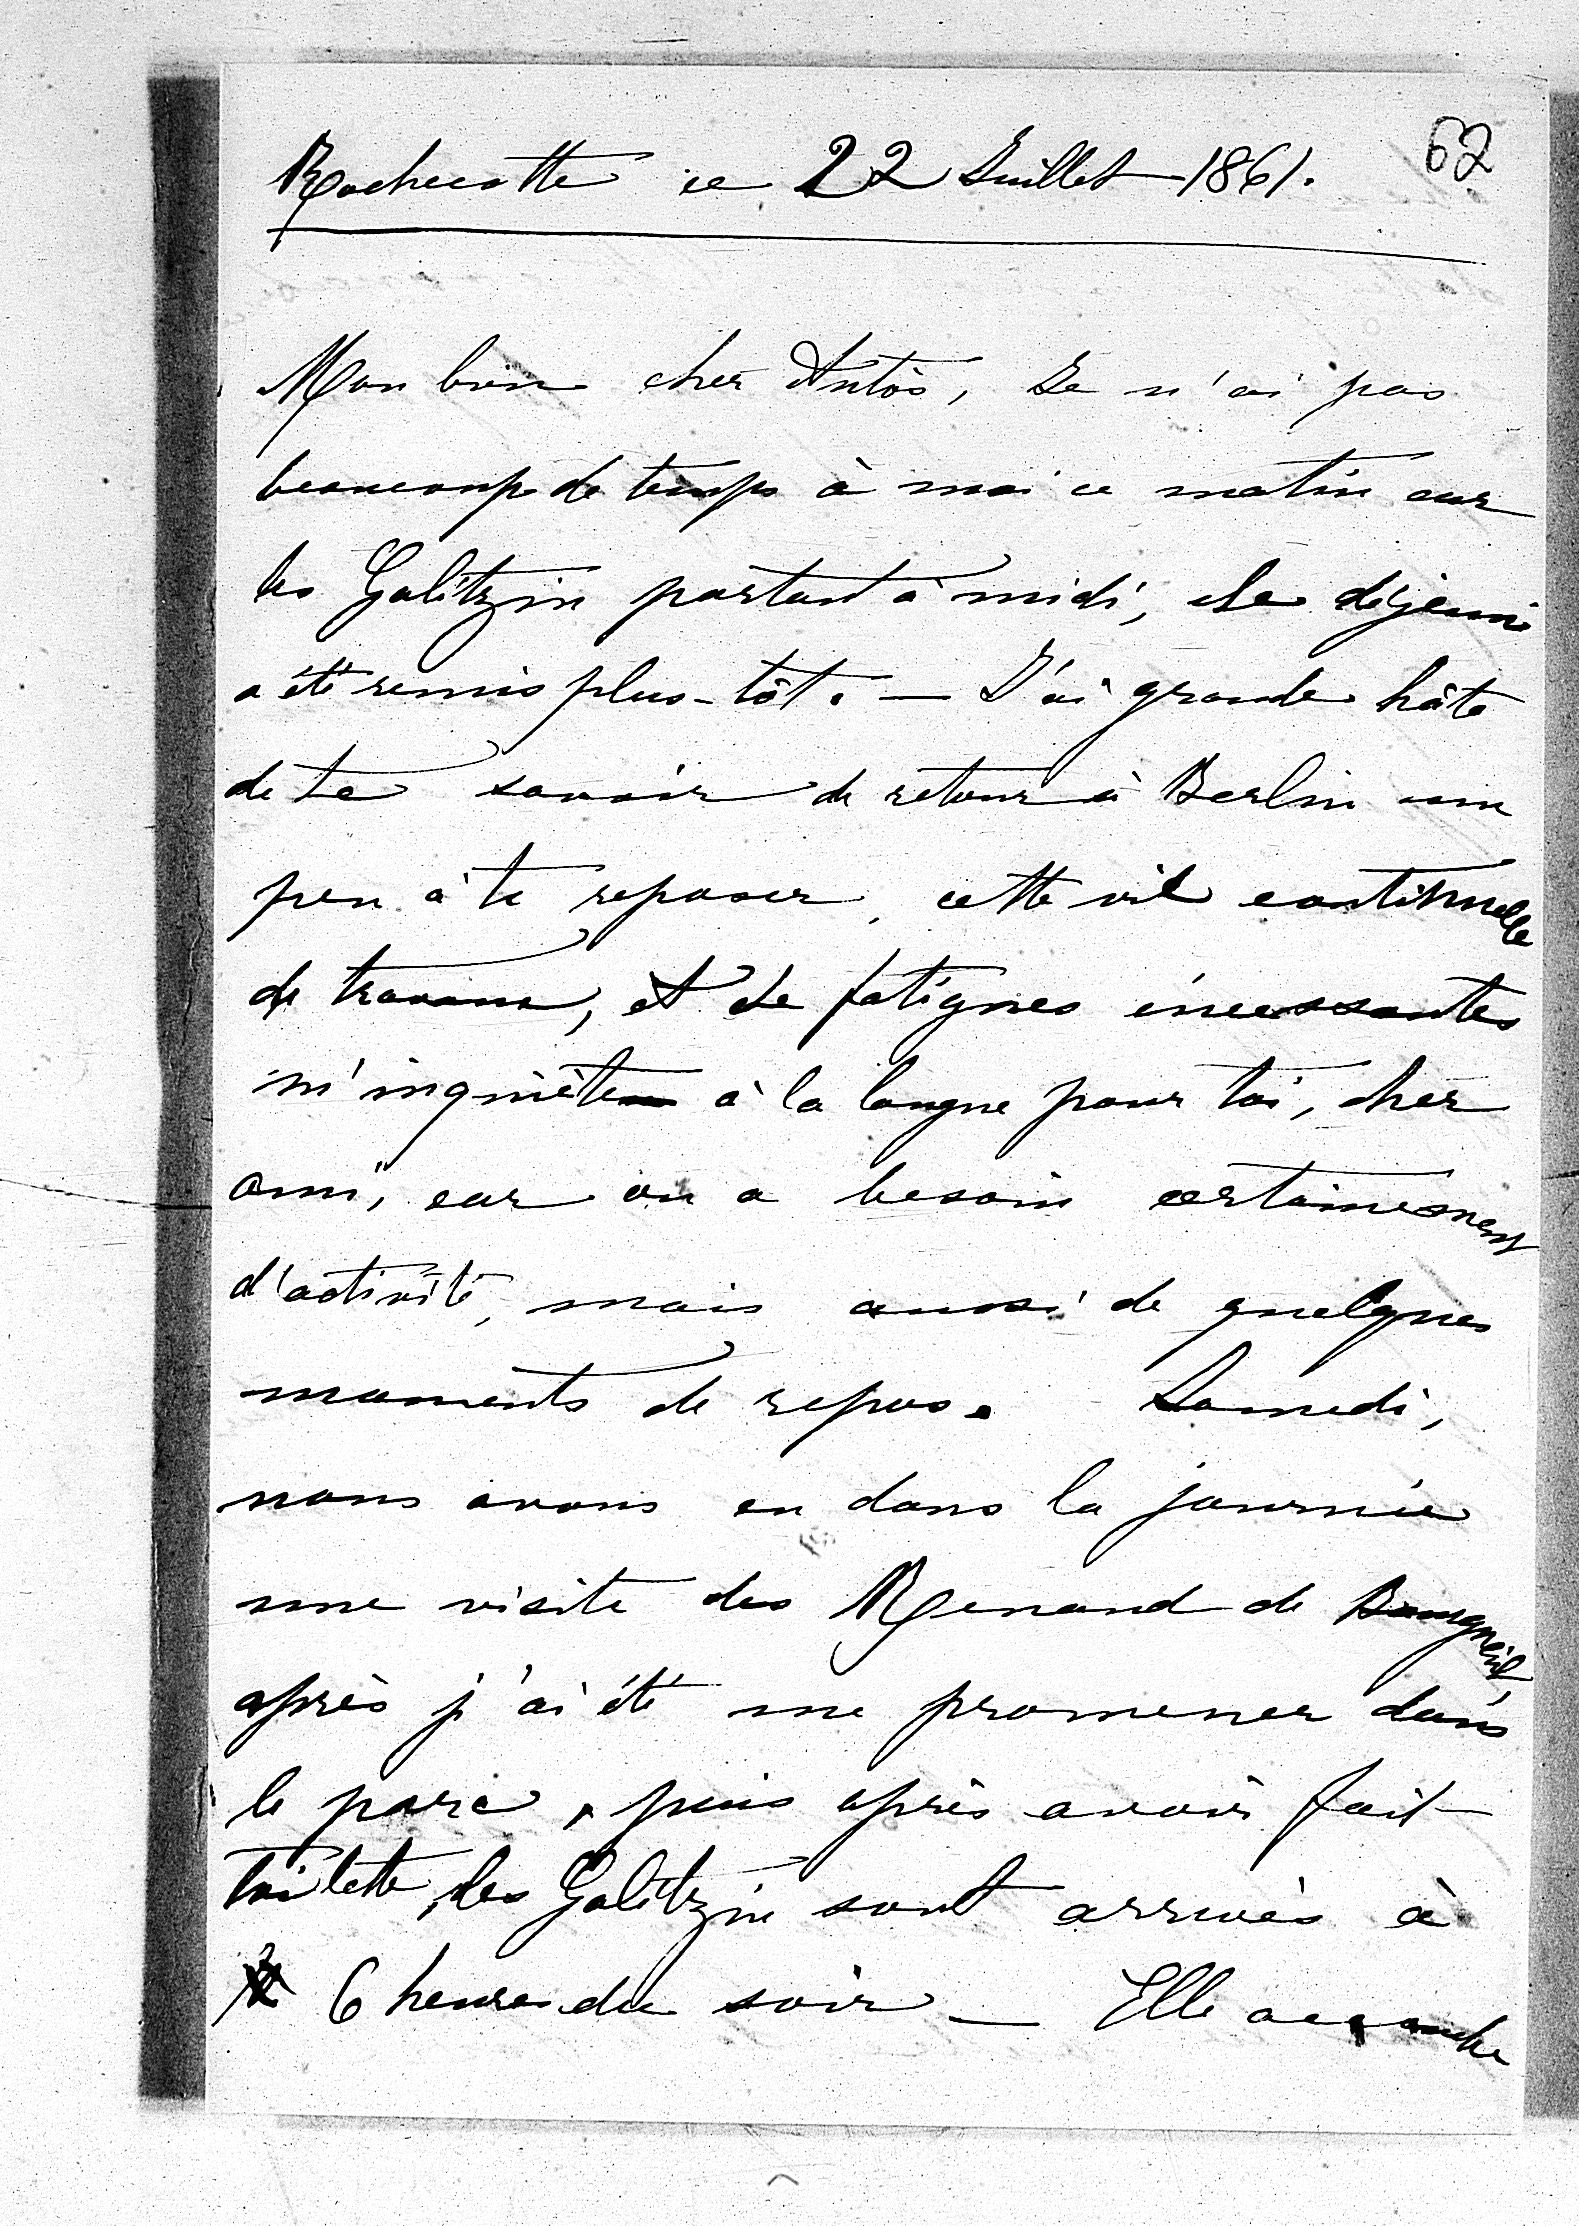 62
Rochecotte ce 22 Juillet 1861.
Mon bien cher Antôs, Je n'ai pas
beaucoup de temps à moi ce matin car
les Galitzin partant à midi, le déjeuné
a été remis plus-tôt. — J'ai grande hâte
de te savoir de retour à Berlin un
peu à te reposer, cette vie continuelle
de travaux, et de fatigues incessantes
m'inquiète à la longue pour toi, cher
ami, car on a besoin certainement
d'activité, mais aussi de quelques
moments de repos. Samedi,
nous avons eu dans la journée
une visite des Renand de Bourgueil,
après j'ai été me promener dans
le parc, puis après avoir fait
toilette, les Galitzin sont arrivés à
6 heures du soir — Elle a